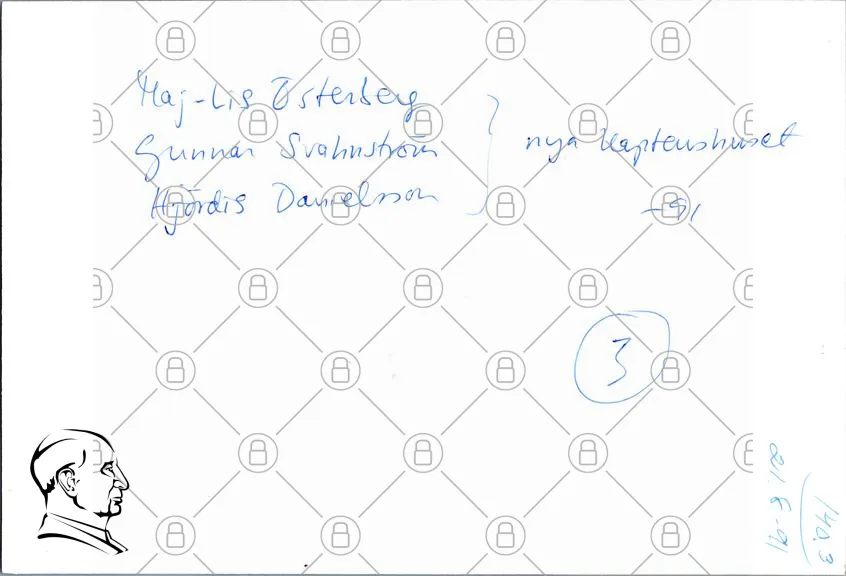 Maj-Lis Österberg
Gunnar Svahnström
Hjördis Danielsson
nya Kaptenshuset
-91
3
140.3
21.8-91